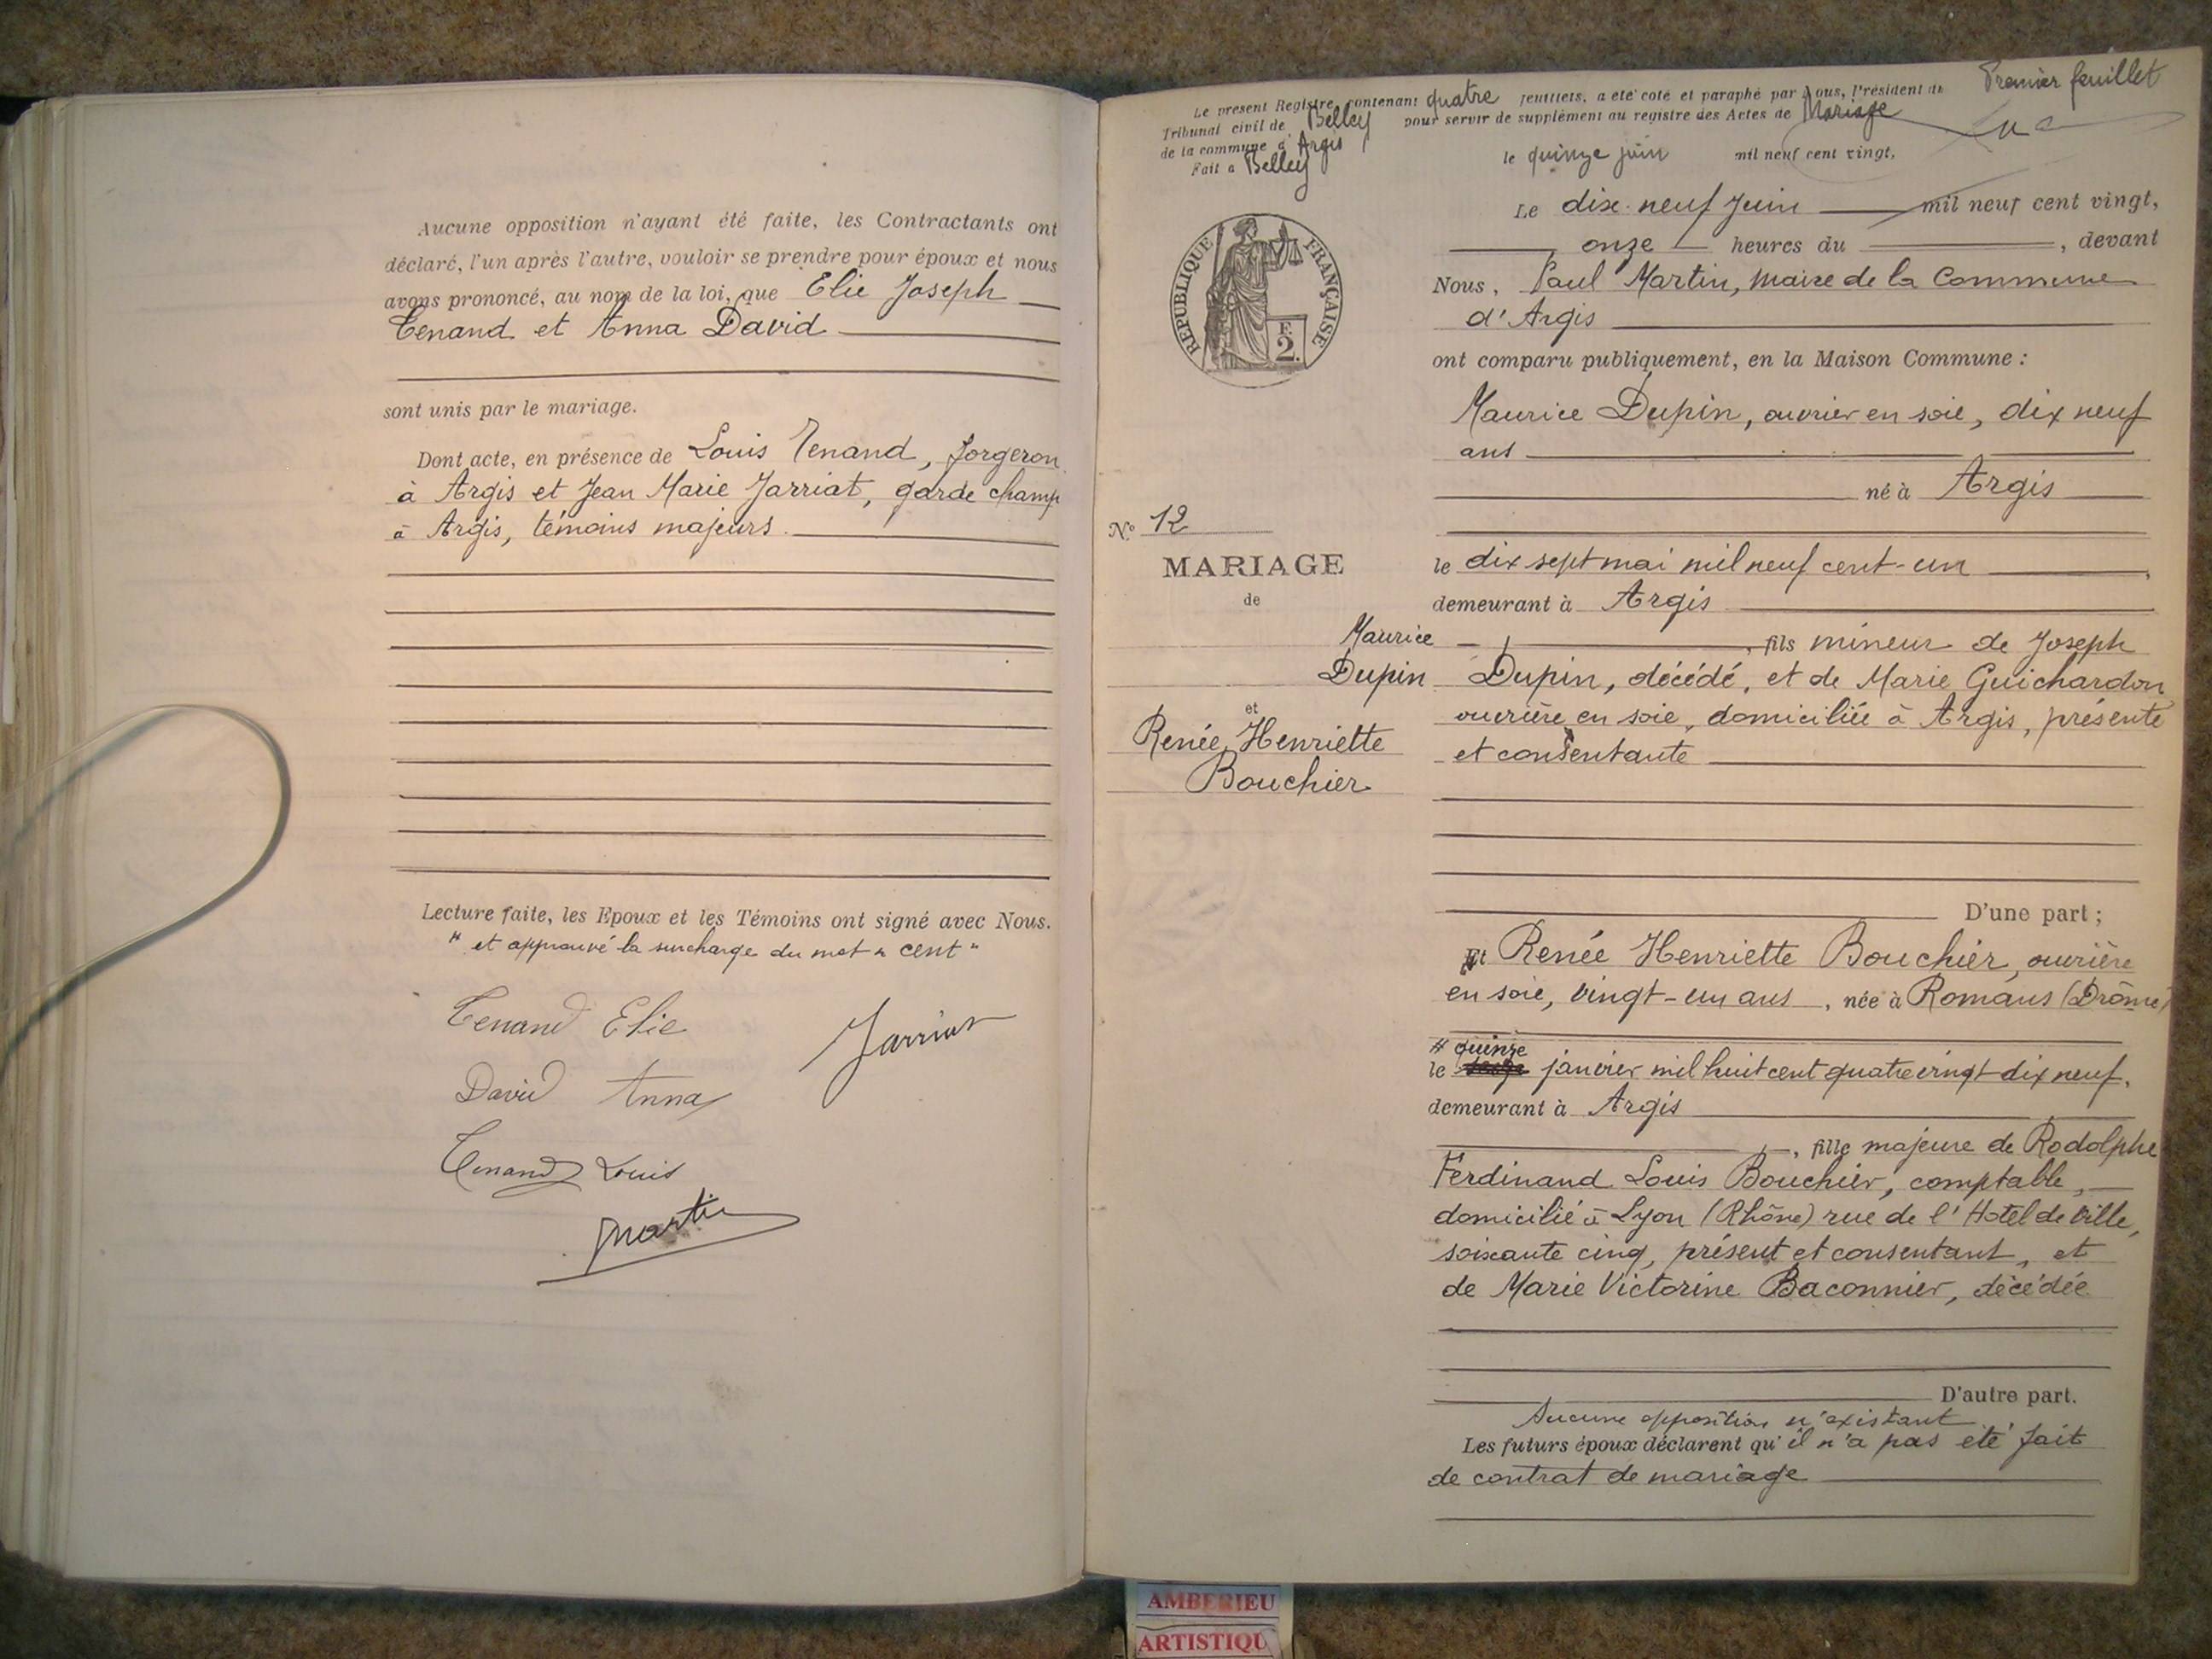 Aucune opposition n'ayant été faite, les Contractants ont
déclaré, l'un après l'autre, vouloir se prendre pour époux et nous
avons prononcé, au nom de la loi, que Elie Joseph
Tenand et Anna David
sont unis par le mariage.
Dont acte, en présence de Louis Tenand, forgeron
à Argis et Jean Marie Jarriat, garde champ
à Argis, témoins majeurs.
Lecture faite, les Epoux et les Témoins ont signé avec Nous.
" et approuvé la surcharge du mot " cent "
Tenand Elie
Jarriat
David Anna
Tenand Louis
Martin
Premier feuillet
Le présent Registre, contenant quatre feuillets, a été coté et paraphé par Nous, Président du
Tribunal civil de Belley pour servir de supplément au registre des Actes de Mariage
de la commune d'Argis
Fait à Belley le quinze juin mil neuf cent vingt,
REPUBLIQUE FRANÇAISE
F.
2.
Le dix-neuf Juin mil neuf cent vingt,
onze heures du , devant
Nous, Paul Martin, Maire de la Commune
d'Argis
ont comparu publiquement, en la Maison Commune :
Maurice Dupin, ouvrier en soie, dix neuf
ans
né à Argis
N° 12
MARIAGE
de
Maurice
Dupin
et
Renée Henriette
Bouchier
le dix sept mai mil neuf cent-un ,
demeurant à Argis
, fils mineur de Joseph
Dupin, décédé, et de Marie Guichardon
ouvrière en soie, domiciliée à Argis, présente
et consentante
D'une part ;
Et Renée Henriette Bouchier, ouvrière
en soie, vingt-un ans , née à Romans (Drôme)
" quinze
le janvier mil huit cent quatre vingt-dix neuf,
demeurant à Argis
, fille majeure de Rodolphe
Ferdinand Louis Bouchier, comptable,
domicilié à Lyon (Rhône) rue de l'Hotel de Ville,
soixante cinq, présent et consentant, et
de Marie Victorine Baconnier, décédée
D'autre part.
Aucune opposition n'existant
Les futurs époux déclarent qu'il n'a pas été fait
de contrat de mariage
AMBERIEU
ARTISTIQU